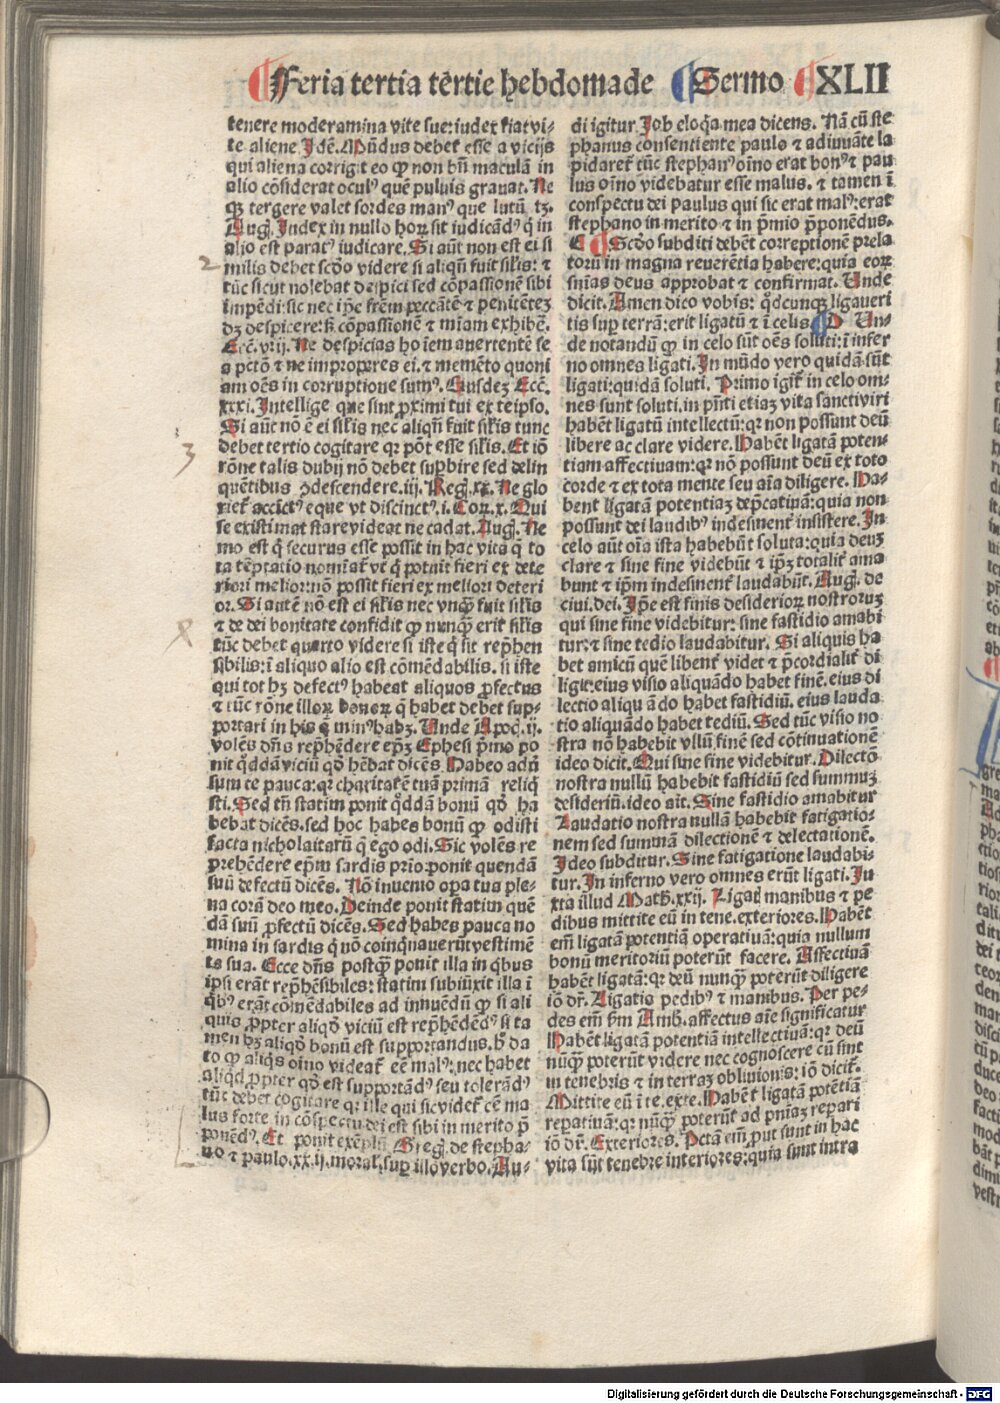 ¶ Feria tertia tertie hebdomade ¶ Sermo ¶ XLII
tenere moderamina vite sue: iudex fiat vi-
te aliene. Idē. Mūdus debet esse a vicijs
qui aliena corrigit eo ꝙ non bñ maculā in
alio cōsiderat oculꝰ quē puluis grauat. Ne
qꝫ tergere valet sordes manꝰ que lutū tꝫ.
Augꝭ. Iudex in nullo hoꝝ sit iudicādꝰ q̄ in
alio est paratꝰ iudicare. Si aūt non est ei si
2 milis debet scďo videre si aliqñ fuit silis: ⁊
tūc sicut nolebat despici sed cōpassionē sibi
impēdi: sic nec ip̄e frēm peccātē ⁊ penitēteꝫ
dꝫ despicere: sꝫ cōpassionē ⁊ miam exhibē.
Ecc̄. viij. Ne despicias hoīem auertentē se
a pctō ⁊ ne improperes ei. ⁊ memēto quoni
am oēs in corruptione sumꝰ. Eiusdeꝫ Ecc̄.
xxxi. Intellige que sint ꝓximi tui ex teipso.
Si aūt nō ē ei silis nec aliqñ fuit silis tunc
3 debet tertio cogitare qꝛ pōt esse silis. Et iō
rōne talis dubij nō debet supbire sed delin
quētibus ꝯdescendere. iij. Regꝭ. xx. Ne glo
riet accictꝰ eque vt discinctꝰ. i. Coꝝ. x. Qui
se existimat stare videat ne cadat. Augꝭ. Ne
mo est q̄ securus esse possit in hac vita q̄ to
ta tēptatio nomīat vt q̄ potuit fieri ex dete
riori melior: nō possit fieri ex meliori deteri
or. Si autē nō est ei silis nec vnqꝫ fuit silis
⁊ de dei bonitate confidit ꝙ nunqꝫ erit silis
tūc debet quarto videre si iste q̄ sit rep̄hen
sibilis: ī aliquo alio est cōmēdabilis. si iste
qui tot hꝫ defectꝰ habeat aliquos ꝓfectus
⁊ tūc rōne illoꝝ bonoꝝ q̄ habet debet sup-
portari in his q̄ minꝰ habꝫ. Unde Apoc̄. ij.
volēs dn̄s rep̄hēdere ep̄ꝫ Ephesi p̄mo po
nit qďdā viciū qď hēbat dicēs. Habeo adū
sum te pauca: qꝛ charitatē tuā primā reliq
sti. Sed tn̄ statim ponit qďdā bonū qď ha
bebat dicēs. sed hoc habes bonū ꝙ odisti
facta nicholaitarū q̄ ego odi. Sic volēs re
prehēdere ep̄m sardis prio ponit quendā
suū defectū dicēs. Nō inuenio opa tua ple-
na corā deo meo. Deinde ponit statim quē
dā suū ꝓfectū dicēs. Sed habes pauca no
mina in sardis q̄ nō coinqnauerūt vestimē
ta sua. Ecce dn̄s postqꝫ ponit illa in qbus
ipsi erāt rep̄hēsibiles: statim subiūxit illa ī
qbꝰ erāt cōmēdabiles ad innuēdū ꝙ si ali
quis ꝓpter aliqď viciū est rep̄hēdēdꝰ si ta
men hꝫ aliqď bonū est supportandus. hꝰ da
to ꝙ aliqs oīno videat eē malꝰ: nec habet
aliqď ꝓpter qď est supportādꝰ seu tolerādꝰ
tūc debet cogitare qꝛ ille qui sic videt eē ma
lus forte in cōspectu dei est sibi in merito p̄
ponēdꝰ. Et ponit exēplū Gregꝭ. de stepha-
no ⁊ paulo. xx. ij. moral. sup illo verbo. Au-
di igitur Job eloqa mea dicens. Nā cū ste
phanus consentiente paulo ⁊ adiuuāte la
pidaret tūc stephanꝰ oīno erat bonꝰ ⁊ pau
lus oīno videbatur esse malus. ⁊ tamen ī
conspectu dei paulus qui sic erat malꝰ: erat
stephano in merito ⁊ in p̄mio p̄ponēdus.
C ¶ Scďo subditi debēt correptionē prela
torū in magna reuerētia habere: quia eoꝝ
sn̄ias deus approbat ⁊ confirmat. Unde
dicit. Amen dico vobis: qďcunqꝫ ligaueri
tis sup terrā: erit ligatū ⁊ ī celis. ¶ D Un-
de notandū ꝙ in celo sūt oēs soluti: ī infer
no omnes ligati. In mūdo vero quidā sūt
ligati: quidā soluti. Primo igit in celo om-
nes sunt soluti. in pn̄ti etiaꝫ vita sancti viri
habēt ligatū intellectū: qꝛ non possunt deū
libere ac clare videre. Habēt ligatā poten-
tiam affectiuam: qꝛ nō possunt deū ex toto
corde ⁊ ex tota mente seu aīa diligere. Ha-
bent ligatā potentiaꝫ dep̄catiuā: quia non
possunt dei laudibꝰ indesinent insistere. In
celo aūt oīa ista habebūt soluta: quia deuꝫ
clare ⁊ sine fine videbūt ⁊ ip̄ꝫ totalit ama
bunt ⁊ ip̄m indesinent laudabūt. Augꝭ. de
ciui. dei. Ip̄e est finis desiderioꝝ nostroruꝫ
qui sine fine videbitur: sine fastidio amabi
tur: ⁊ sine tedio laudabitur. Si aliquis ha
bet amicū quē libent videt ⁊ p̄cordialit di
ligit: eius visio aliquādo habet finē. eius di
lectio aliquādo habet fastidiū. eius lauda
tio aliquādo habet tediū. Sed tūc visio no
stra nō habebit vllū finē sed cōtinuationē
ideo dicit. Qui sine fine videbitur. Dilectō
nostra nullū habebit fastidiū sed summuꝫ
desideriū. ideo ait. Sine fastidio amabitur
Laudatio nostra nullā habebit fatigatio-
nem sed summā dilectionē ⁊ delectationē.
Ideo subditur. Sine fatigatione laudabi-
tur. In inferno vero omnes erūt ligati. Iu
xta illud Math. xxij. Ligat manibus ⁊ pe
dibus mittite eū in tene. exteriores. Habēt
em̄ ligatā potentiā operatiuā: quia nullum
bonū meritoriū poterūt facere. Affectiuā
habēt ligatā: qꝛ deū nunqꝫ poterūt diligere
iō dr̄. Ligatis pedibꝰ ⁊ manibus. Per pe-
des em̄ ẜm Amb. affectus aīe significatur
Habēt ligatā potentiā intellectiuā: qꝛ deū
nūqꝫ poterūt videre nec cognoscere cū sint
in tenebris ⁊ in terraꝫ obliuionis: iō dicit.
Mittite eū ī te. exte. Habēt ligatā potētiā
reparatiuā: qꝛ nūqꝫ poterūt ad pn̄iaꝫ repari
iō dr̄. Exteriores. Pctā em̄ put sunt in hac
vita sūt tenebre interiores: quia sunt intra